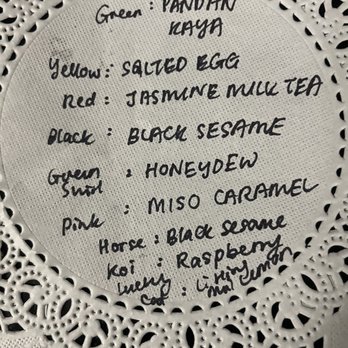 Green: PANDAN
KAYA
Yellow: SALTED EGG
Red: JASMINE MILK TEA
Black: BLACK SESAME
Green : HONEYDEW
Swirl
Pink : MISO CARAMEL
Horse: Black sesame
Koi : Raspberry
Lucky
Cat :